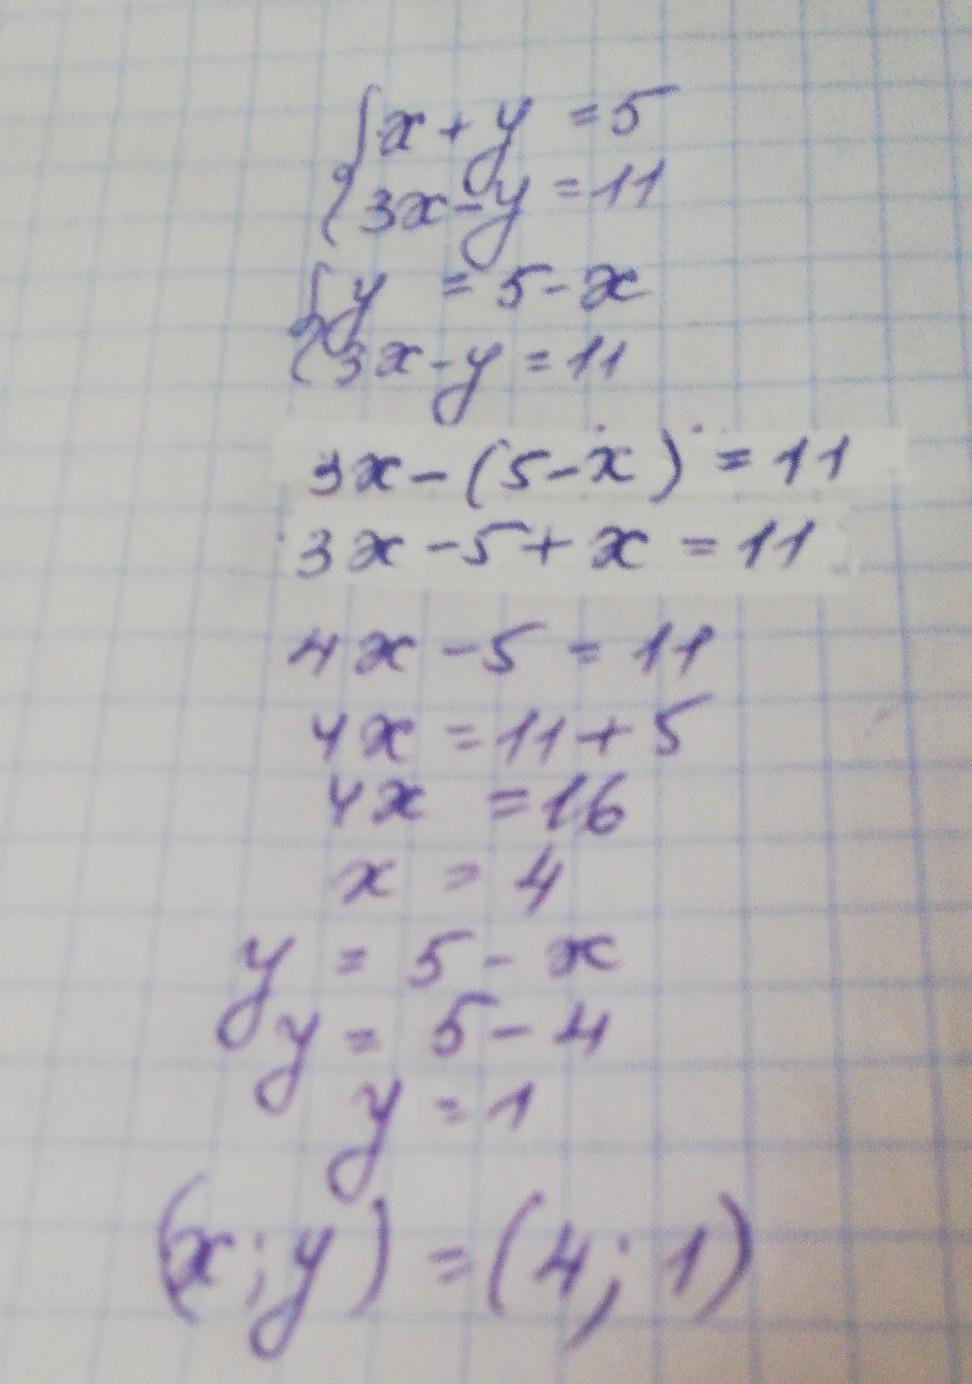 {x + y = 5
{3x - y = 11
{y = 5 - x
{3x - y = 11
3x - (5 - x) = 11
3x - 5 + x = 11
4x - 5 = 11
4x = 11 + 5
4x = 16
x = 4
y = 5 - x
y = 5 - 4
y = 1
(x; y) = (4; 1)